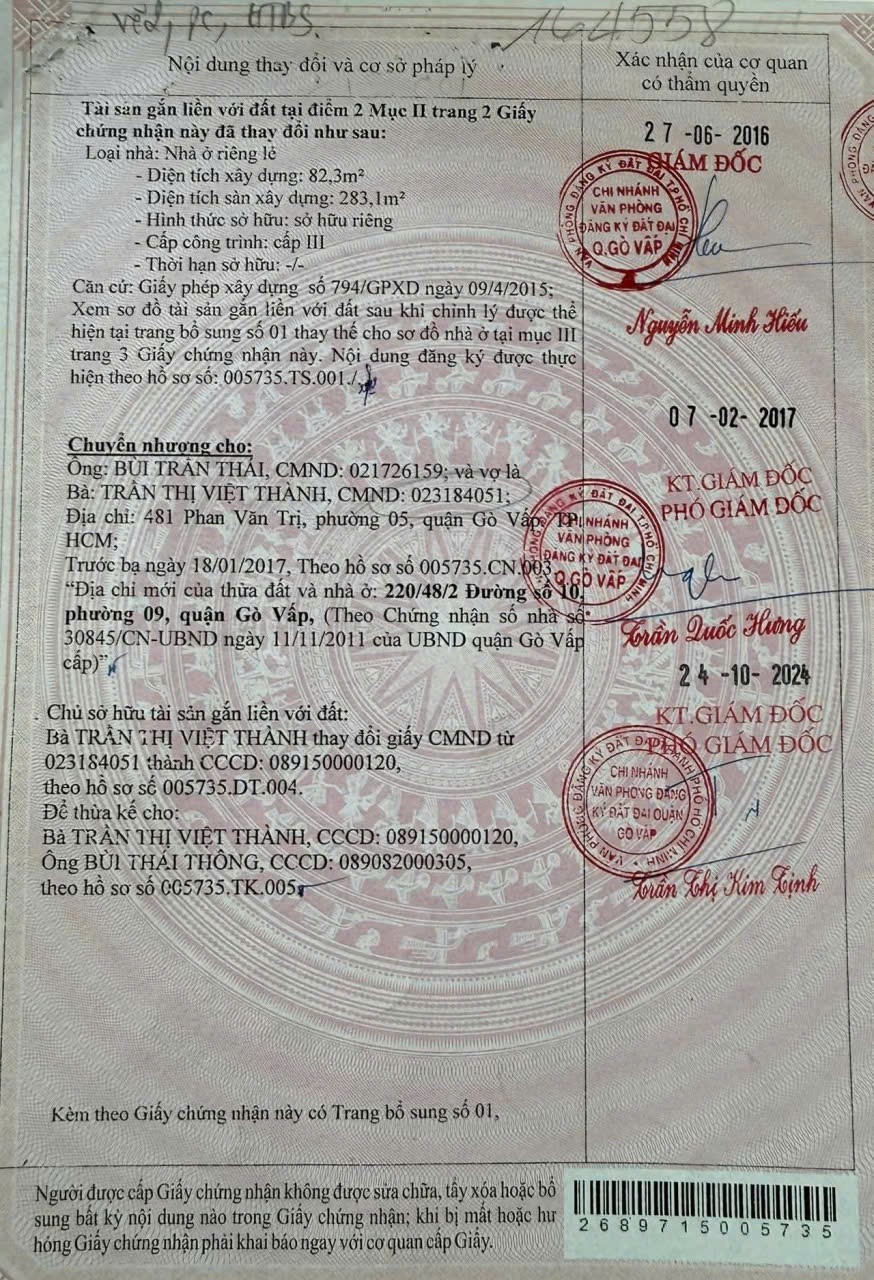 vẽ2, pc, HTBS.
164558
Nội dung thay đổi và cơ sở pháp lý
Xác nhận của cơ quan
có thẩm quyền
Tài sản gắn liền với đất tại điểm 2 Mục II trang 2 Giấy
chứng nhận này đã thay đổi như sau:
Loại nhà: Nhà ở riêng lẻ
- Diện tích xây dựng: 82,3m²
- Diện tích sàn xây dựng: 283,1m²
- Hình thức sở hữu: sở hữu riêng
- Cấp công trình: cấp III
- Thời hạn sở hữu: -/-
Căn cứ: Giấy phép xây dựng số 794/GPXD ngày 09/4/2015;
Xem sơ đồ tài sản gắn liền với đất sau khi chỉnh lý được thể
hiện tại trang bổ sung số 01 thay thế cho sơ đồ nhà ở tại mục III
trang 3 Giấy chứng nhận này. Nội dung đăng ký được thực
hiện theo hồ sơ số: 005735.TS.001./.
27-06-2016
GIÁM ĐỐC
VĂN PHÒNG ĐĂNG KÝ ĐẤT ĐAI T.P HỒ CHÍ MINH
CHI NHÁNH
VĂN PHÒNG
ĐĂNG KÝ ĐẤT ĐAI
Q.GÒ VẤP
Nguyễn Minh Hiếu
Chuyển nhượng cho:
Ông: BÙI TRẦN THÁI, CMND: 021726159; và vợ là
Bà: TRẦN THỊ VIỆT THÀNH, CMND: 023184051;
Địa chỉ: 481 Phan Văn Trị, phường 05, quận Gò Vấp, TP.
HCM;
Trước bạ ngày 18/01/2017, Theo hồ sơ số 005735.CN.003
“Địa chỉ mới của thửa đất và nhà ở: 220/48/2 Đường số 10,
phường 09, quận Gò Vấp, (Theo Chứng nhận số nhà số
30845/CN-UBND ngày 11/11/2011 của UBND quận Gò Vấp
cấp)”
07-02-2017
KT.GIÁM ĐỐC
PHÓ GIÁM ĐỐC
VĂN PHÒNG ĐĂNG KÝ ĐẤT ĐAI T.P HỒ CHÍ MINH
CHI NHÁNH
VĂN PHÒNG
ĐĂNG KÝ ĐẤT ĐAI
Q.GÒ VẤP
Trần Quốc Hưng
Chủ sở hữu tài sản gắn liền với đất:
Bà TRẦN THỊ VIỆT THÀNH thay đổi giấy CMND từ
023184051 thành CCCD: 089150000120,
theo hồ sơ số 005735.DT.004.
Để thừa kế cho:
Bà TRẦN THỊ VIỆT THÀNH, CCCD: 089150000120,
Ông BÙI THÁI THÔNG, CCCD: 089082000305,
theo hồ sơ số 005735.TK.005
24-10-2024
KT.GIÁM ĐỐC
PHÓ GIÁM ĐỐC
VĂN PHÒNG ĐĂNG KÝ ĐẤT ĐAI THÀNH PHỐ HỒ CHÍ MINH
CHI NHÁNH
VĂN PHÒNG ĐĂNG
KÝ ĐẤT ĐAI QUẬN
GÒ VẤP
Trần Thị Kim Tịnh
Kèm theo Giấy chứng nhận này có Trang bổ sung số 01,
Người được cấp Giấy chứng nhận không được sửa chữa, tẩy xóa hoặc bổ
sung bất kỳ nội dung nào trong Giấy chứng nhận; khi bị mất hoặc hư
hỏng Giấy chứng nhận phải khai báo ngay với cơ quan cấp Giấy.
2689715005735